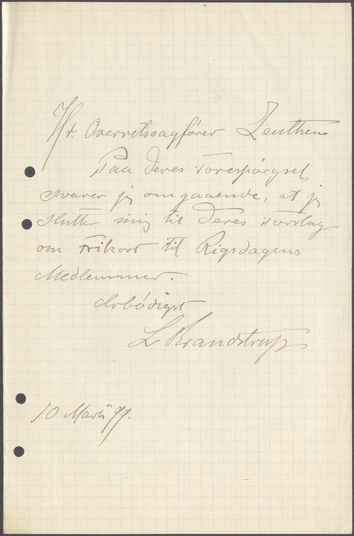 Hr. Overretssagfører Zeuthen
Paa Deres Forespørgsel
svarer jeg omgaaende, at jeg
slutter mig til Deres Forslag
om Frikort til Rigsdagens
Medlemmer.
Ærbødigst
L Brandstrup
10 Marts 97.